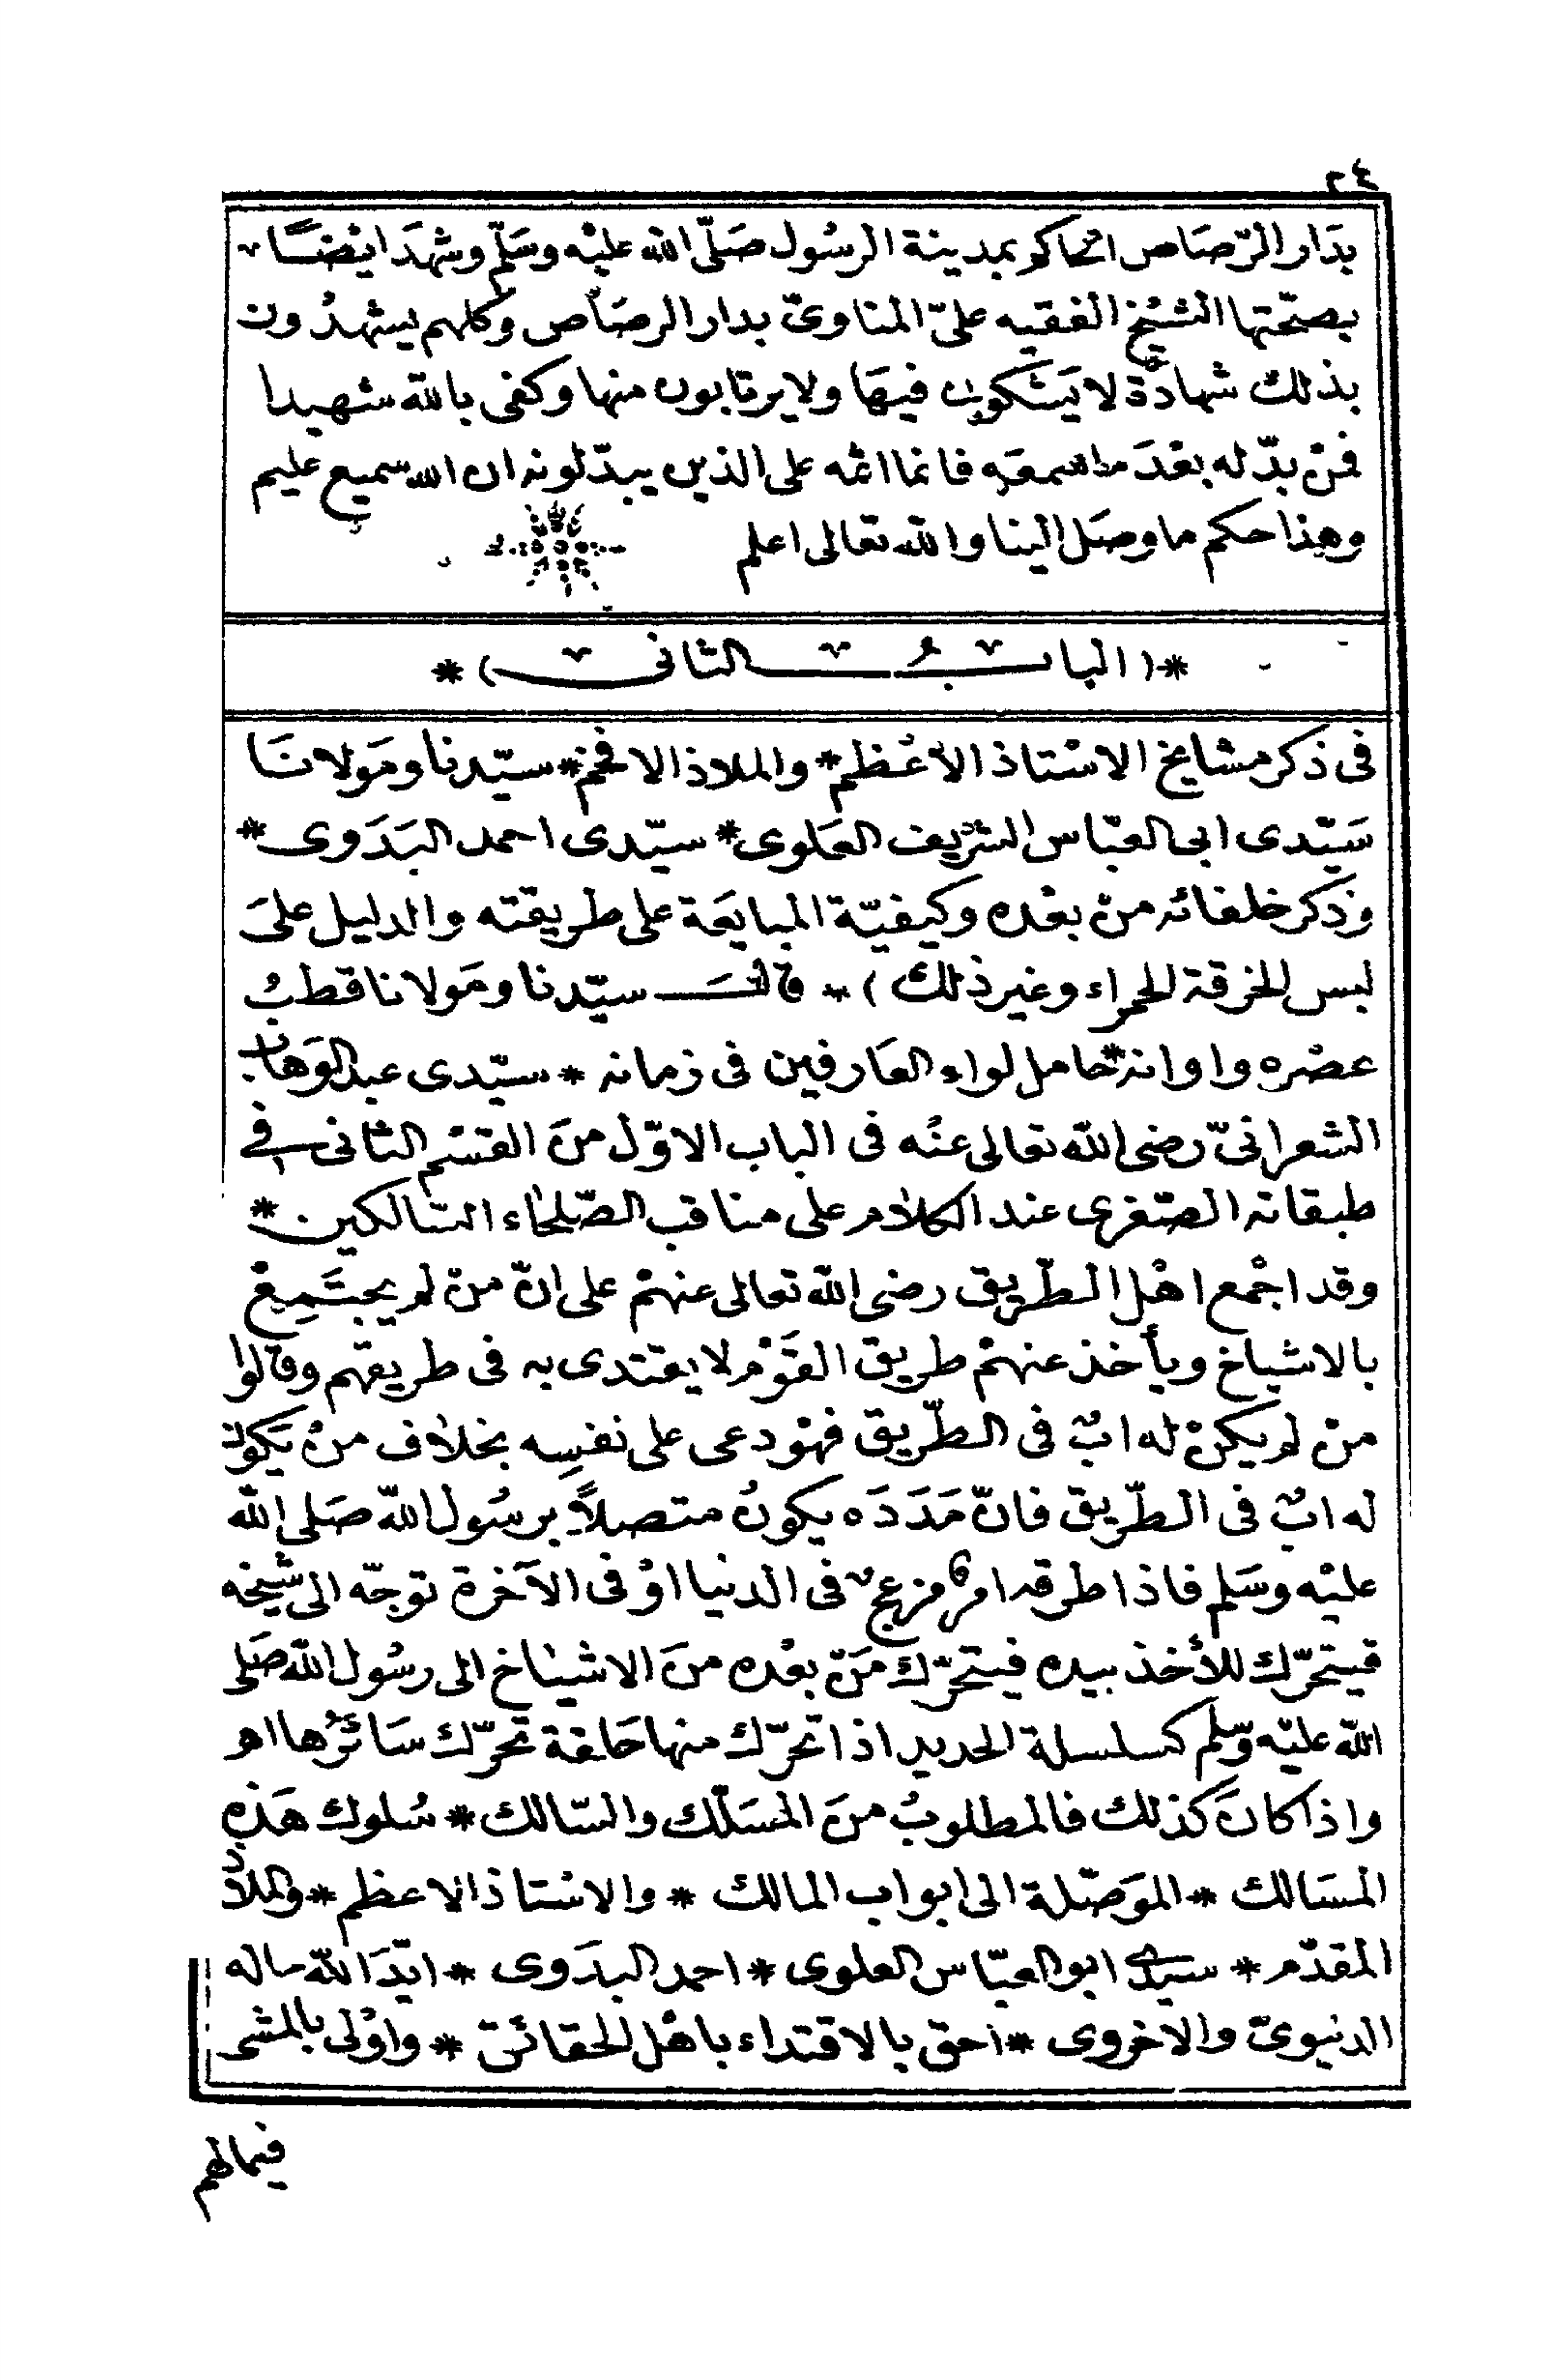 ٢٤
بدَار الرّصَاص الحاكم بمدينة الرسُول صَلّى الله عليْه وسَلّم وشهدَ ايْضًا
بصحّتها الشيْخ الفقيه علىّ المناوىّ بدار الرصَاص وكلهم يشهدُون
بذلك شهادَة لا يَشكون فيهَا ولا يرتابون منها وكفى بالله شهيدا
فمنْ بدّله بعْدَ ما سمعَه فانما اثمه على الذين يبدّلونه ان الله سميع عليم
وهذا حكم ما وصَل الينا والله تعالى اعلم
*( البابُ الثانى )*
فى ذكر مشايخ الاسْتاذ الأعْظم * والملاذ الافخم * سيّدنا ومَولانَا
سَيّدى ابى العبّاس الشريف العَلوى * سيّدى احمد البَدَوى *
وذكر خلفائه منْ بعْده وكيفيّة المبايَعة على طريقته والدليل علىَ
لبس الخرقة الحمراء وغير ذلك ) * قالَ سيّدنا ومَولانا قطبُ
عصْره واوانه * حامل لواء العَارفين فى زمانه * سيّدى عبد الوَهاب
الشعرانىّ رضى الله تعالى عنْه فى الباب الاوّل منَ القسْم الثانى فى
طبقاته الصّغرى عند الكلام على مناقب الصّلحاء السّالكين *
وقد اجْمع اهْل الطّريق رضى الله تعالى عنهمْ على انّ منْ لم يجتَمِعْ
بالاشياخ ويأخذ عنهمْ طريق القَوْم لا يقتدى به فى طريقهم وقالوا
منْ لم يكنْ له ابٌ فى الطّريق فهوْ دعى على نفسِه بخلاف منْ يَكونُ
له ابٌ فى الطّريق فانّ مَدَدَه يكونُ متصلاً برسُول الله صَلى الله
عليْه وسَلم فاذا طرقه امرٌ مزعجٌ فى الدنيا اوْ فى الآخرة توجّه الى شيْخه
فيتحرّك للأخذ بيده فيتحرّك مَنْ بعْده منَ الاشياخ الى رسُول الله صَلى
الله عليْه وسّلم كسلسلة الحديد اذا تحرّك منها حَلقة تحرّك سَائرُها اهـ
واذا كانَ كذلك فالمطلوبُ منَ المسَلّك والسّالك * سُلوك هَذه
المسَالك * الموَصّلة الى ابواب المالك * والاسْتاذ الاعظم * والملاذُ
المقدّم * سيدى ابو العبّاس العلوى * احمد البدَوى * ايّدَ الله حاله
الدنيوىّ والاخروى * احق بالاقتداء باهْل الحقائق * واوْلى بالمشى
فيمالهم